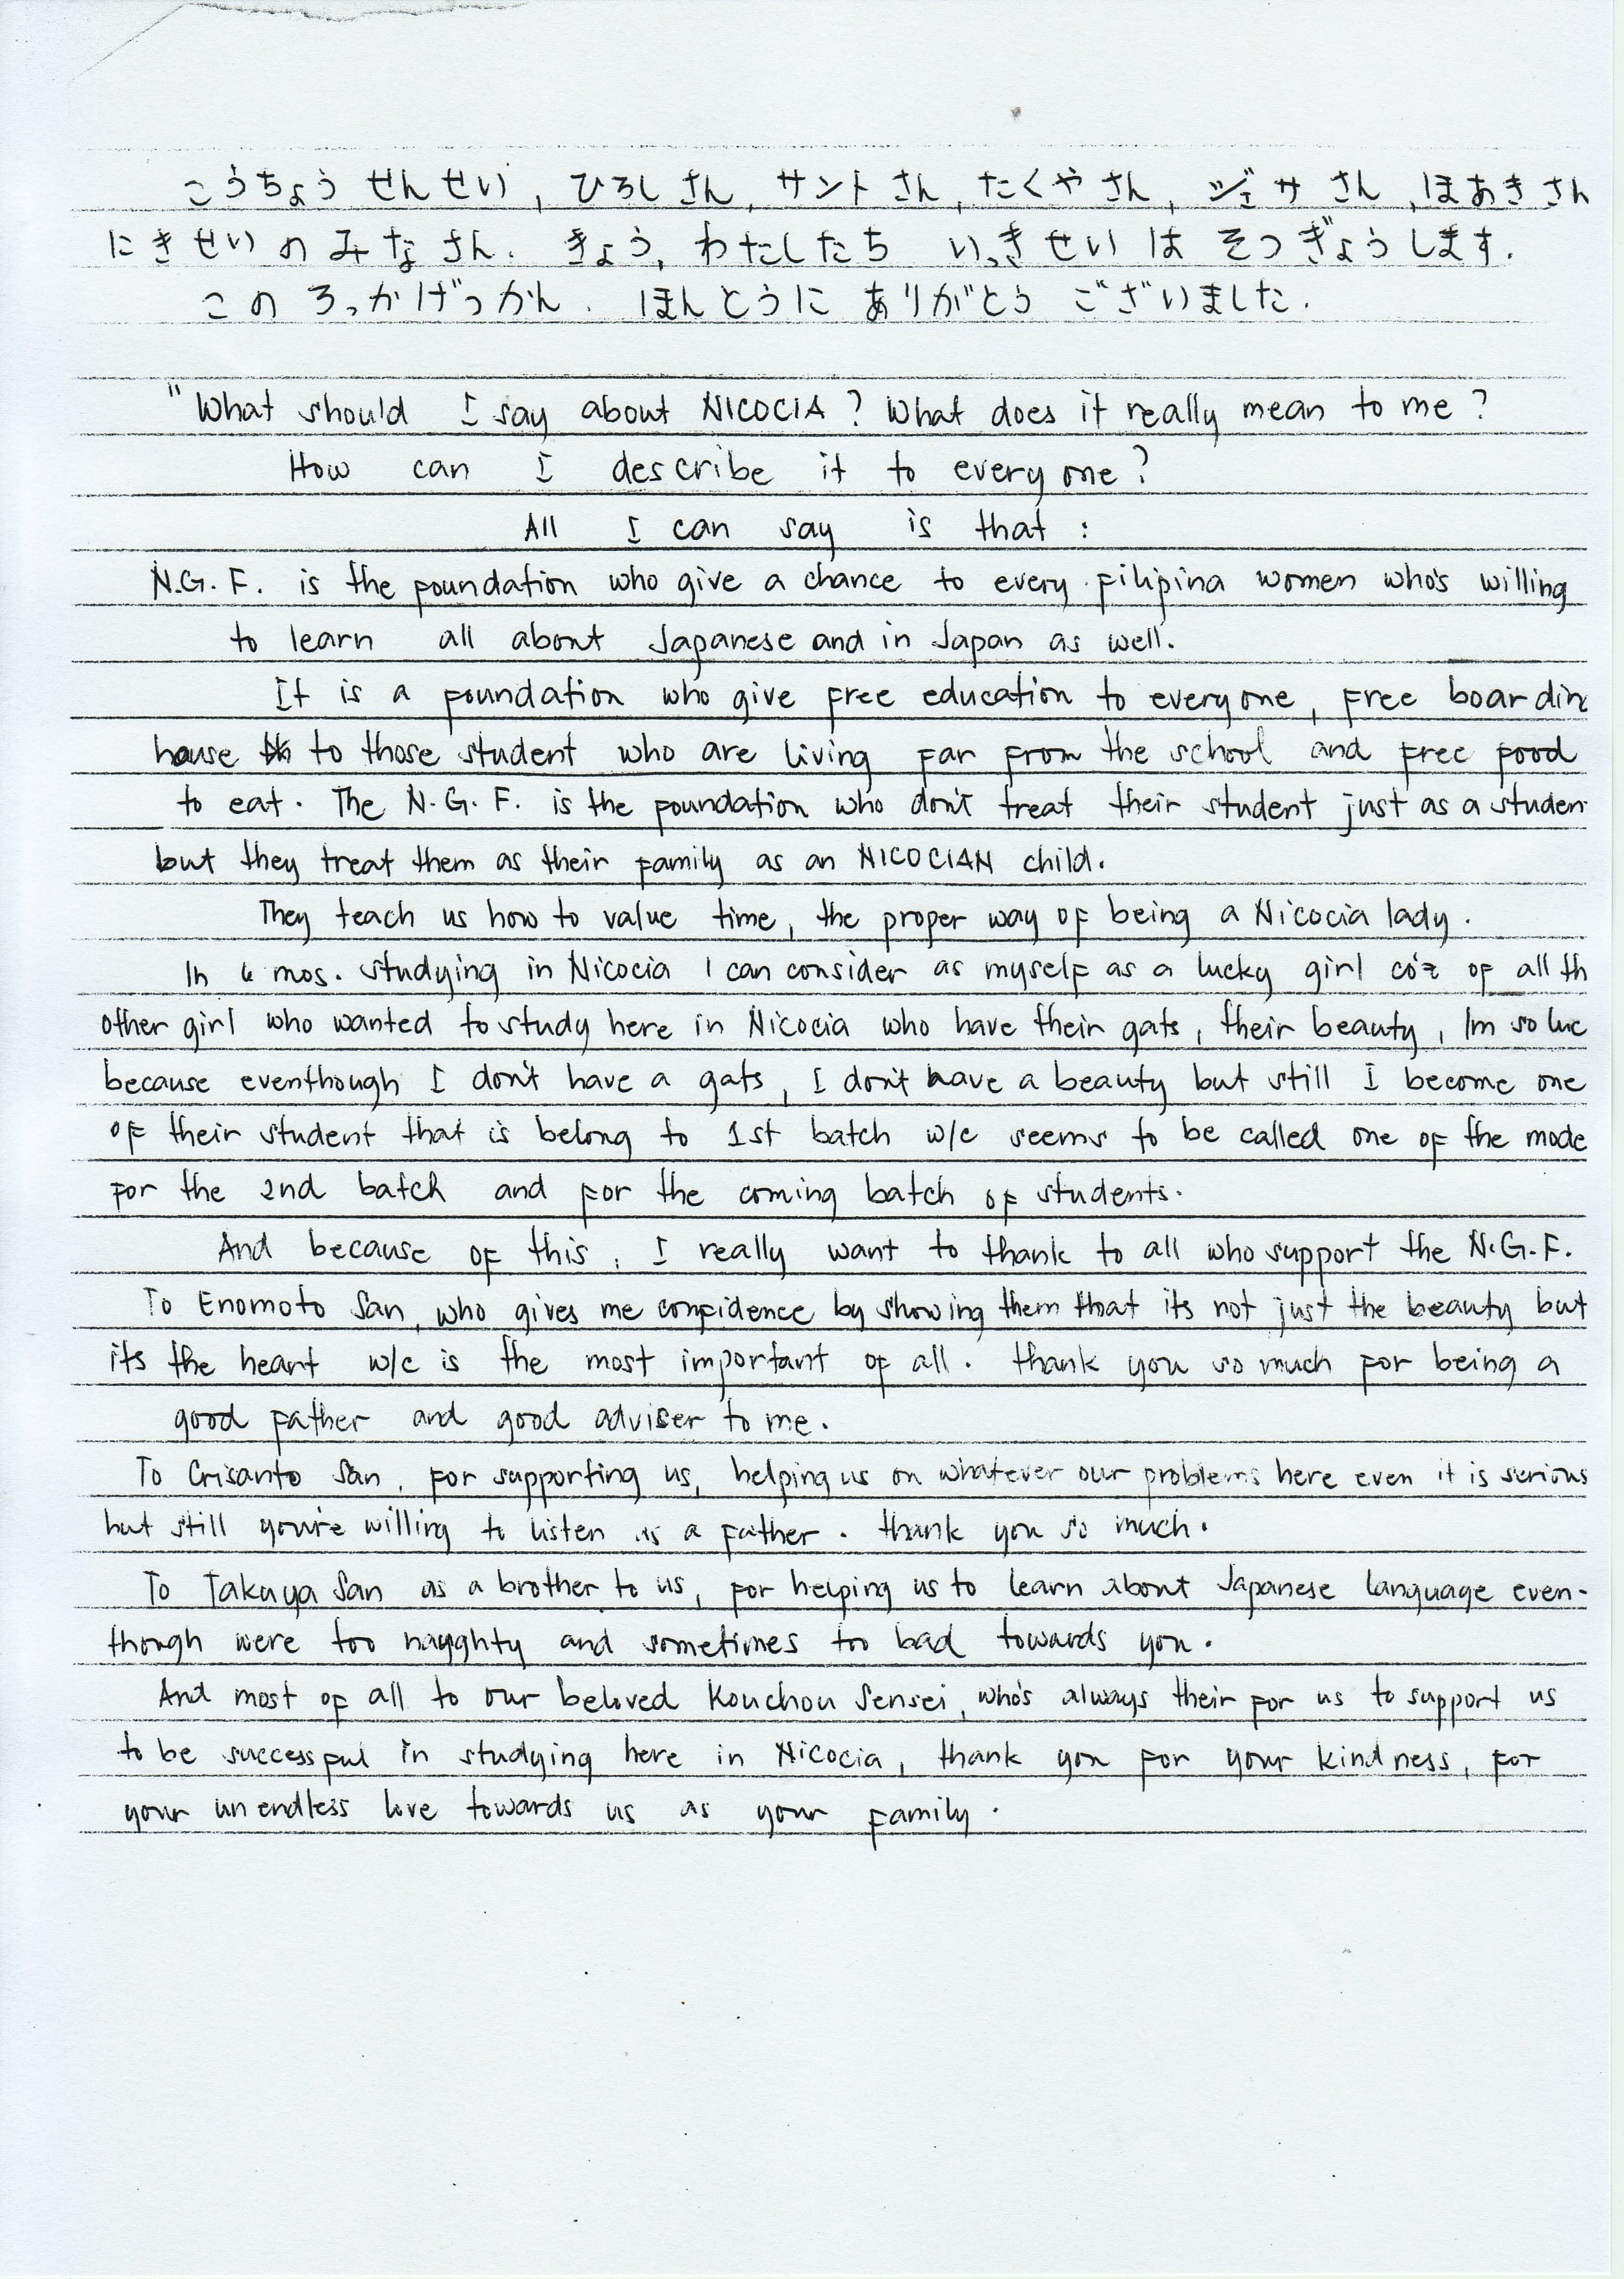 こうちょう せんせい, ひろし さん, サント さん, たくや さん, ジェサ さん, ほあき さん
にきせい の みなさん. きょう, わたしたち いっきせい は そつぎょうします.
この ろっかげつかん. ほんとうに ありがとう ございました.
"What should I say about NICOCIA? What does it really mean to me?
How can I describe it to everyone?
All I can say is that:
N.G.F. is the foundation who give a chance to every filipina women who's willing
to learn all about Japanese and in Japan as well.
It is a foundation who give free education to everyone, free boardin
house to those student who are living far from the school and free food
to eat. The N.G.F. is the foundation who don't treat their student just as a studen
but they treat them as their family as an NICOCIAN child.
They teach us how to value time, the proper way of being a Nicocia lady.
In 6 mos. studying in Nicocia I can consider as myself as a lucky girl co'z of all th
other girl who wanted to study here in Nicocia who have their gats, their beauty, Im so luc
because eventhough I don't have a gats, I don't have a beauty but still I become one
of their student that is belong to 1st batch w/c seems to be called one of the mode
for the 2nd batch and for the coming batch of students.
And because of this, I really want to thank to all who support the N.G.F.
To Enomoto San, who gives me confidence by showing them that its not just the beauty but
its the heart w/c is the most important of all. thank you so much for being a
good father and good adviser to me.
To Crisanto San, for supporting us, helping us on whatever our problems here even it is serious
but still you're willing to listen as a father. thank you so much.
To Takuya San as a brother to us, for helping us to learn about Japanese language even-
though were too nayghty and sometimes too bad towards you.
And most of all to our beloved Kouchou Sensei, who's always their for us to support us
to be successful in studying here in Nicocia, thank you for your kindness, for
your unendless love towards us as your family.